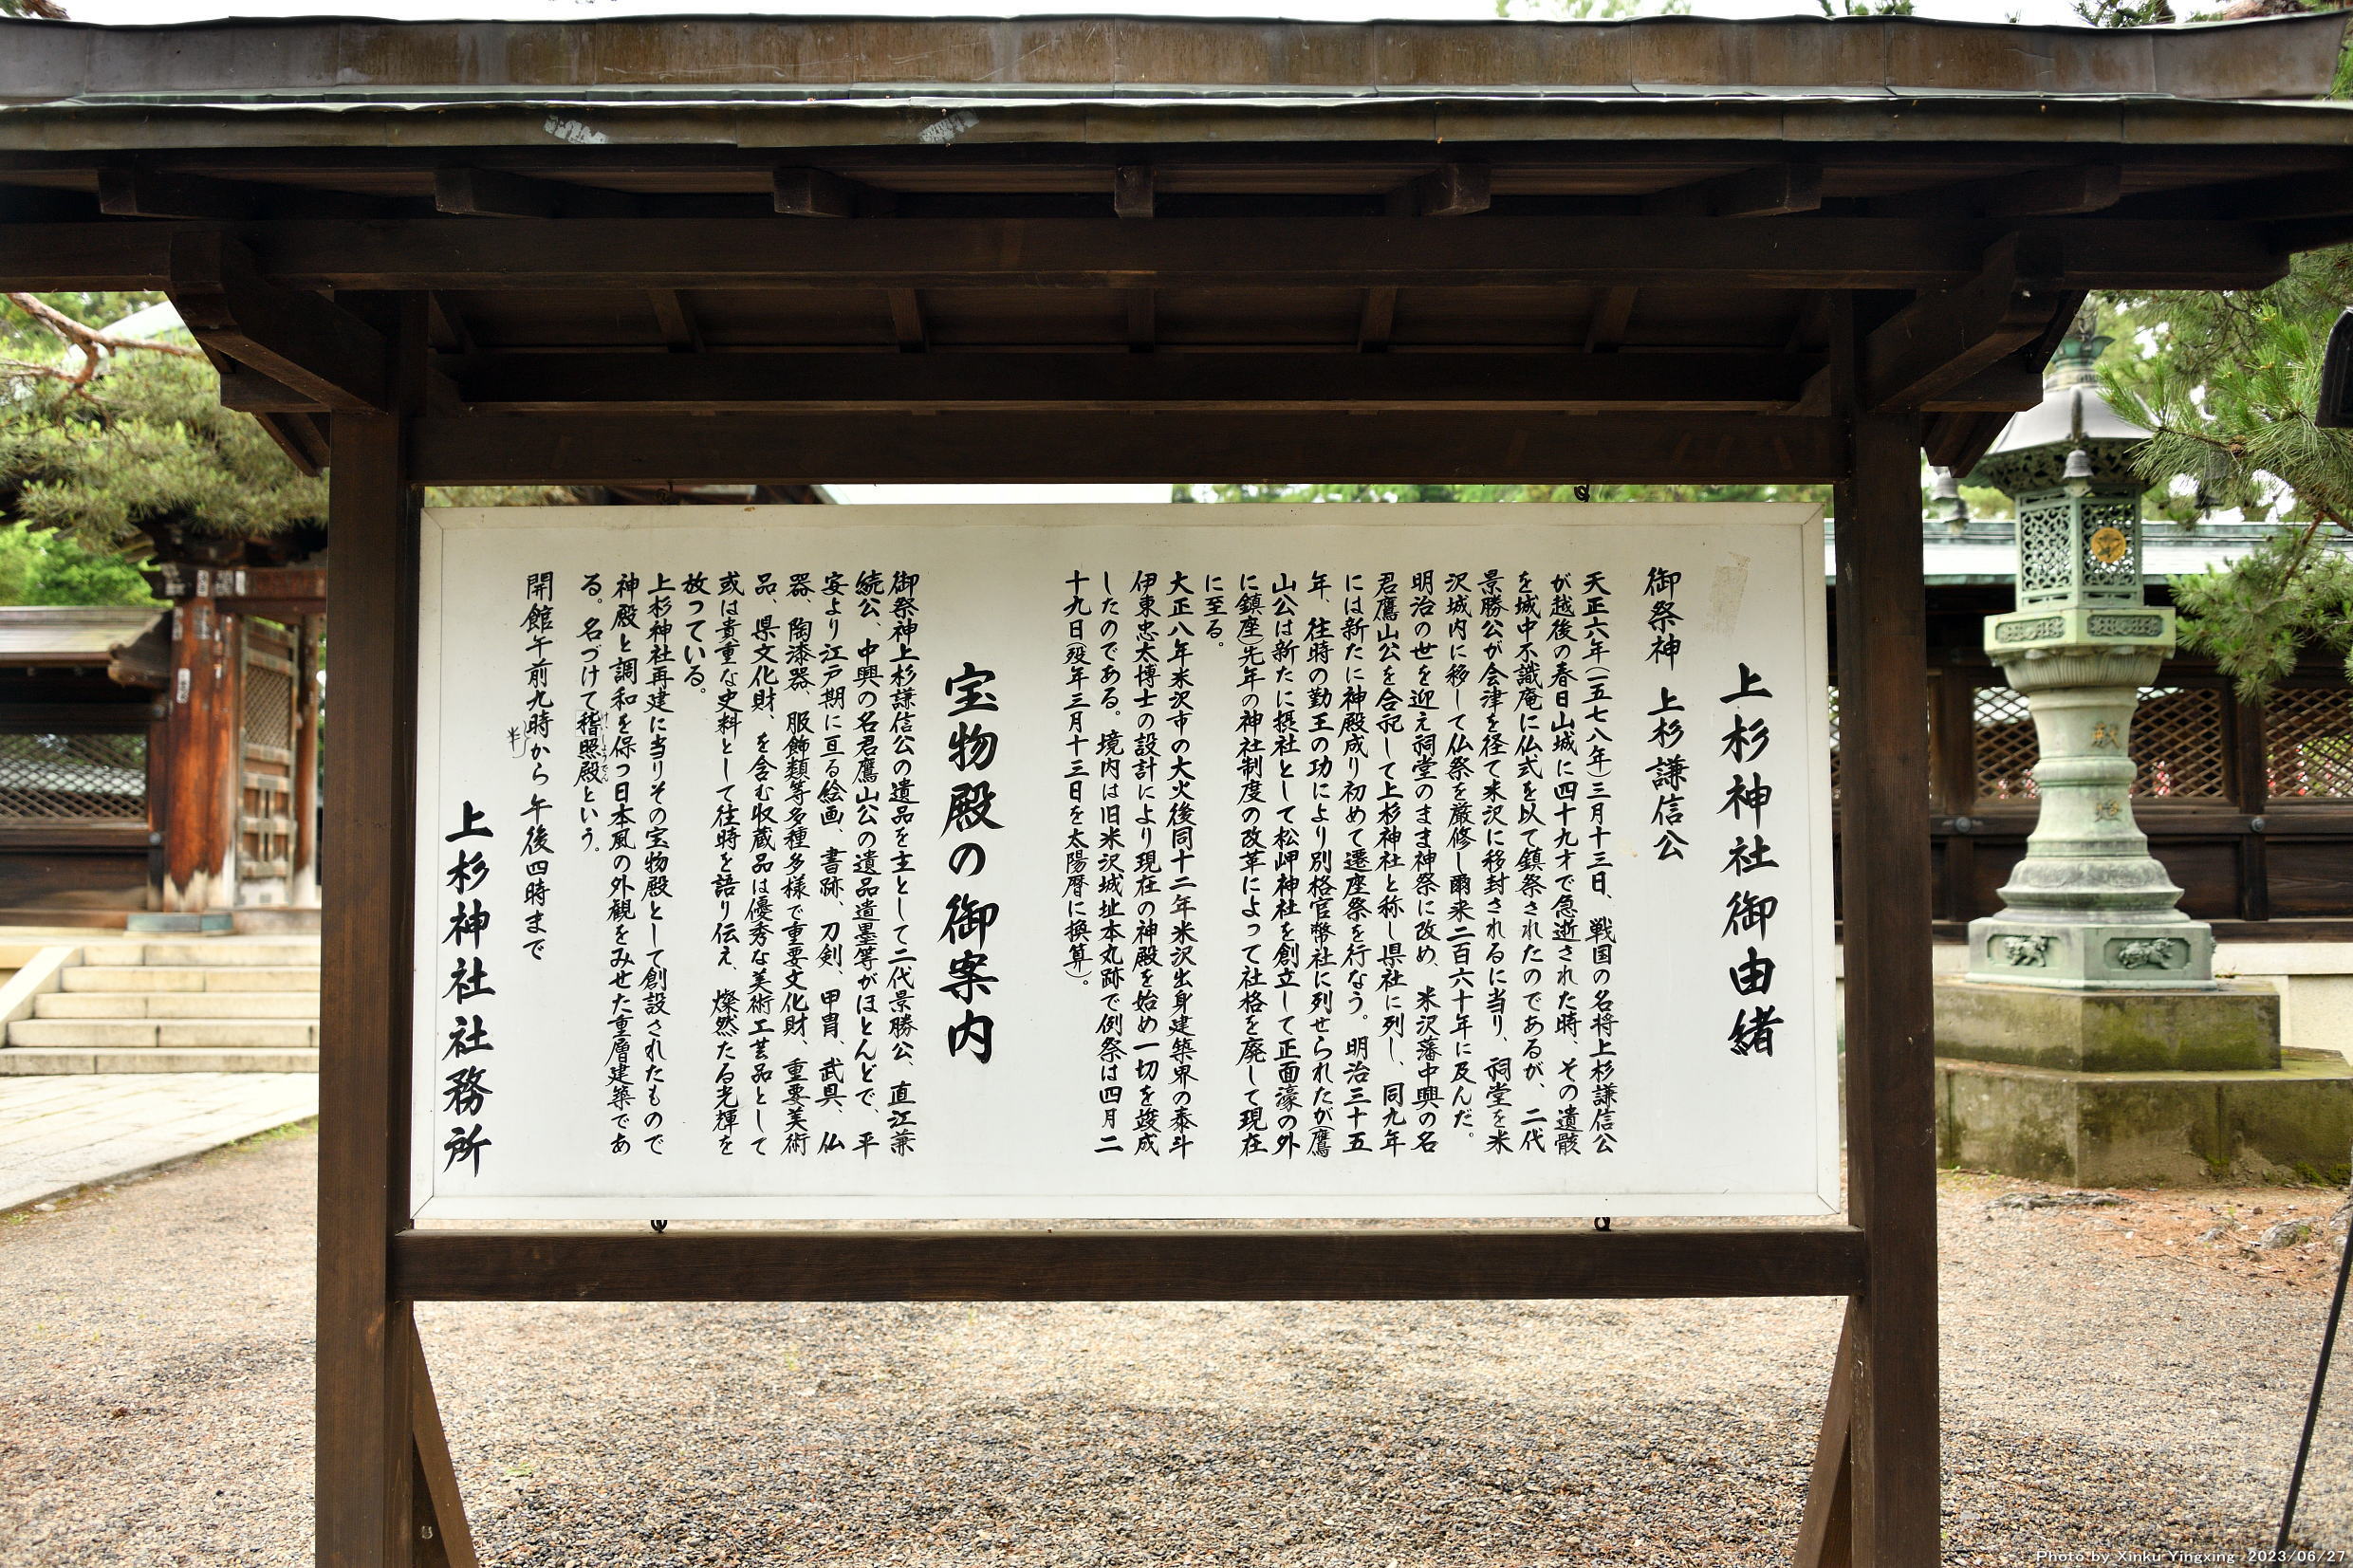 上杉神社御由緒
御祭神 上杉謙信公
天正六年(一五七八年)三月十三日、戦国の名将上杉謙信公
が越後の春日山城に四十九才で急逝された時、その遺骸
を城中不識庵に仏式を以て鎮祭されたのであるが、二代
景勝公が会津を径て米沢に移封されるに当り、祠堂を米
沢城内に移して仏祭を厳修し爾来二百六十年に及んだ。
明治の世を迎え祠堂のまま神祭に改め、米沢藩中興の名
君鷹山公を合祀して上杉神社と称し県社に列し、同九年
には新たに神殿成り初めて遷座祭を行なう。明治三十五
年、往時の勤王の功により別格官幣社に列せられたが(鷹
山公は新たに摂社として松岬神社を創立して正面濠の外
に鎮座)先年の神社制度の改革によって社格を廃して現在
に至る。
大正八年米沢市の大火後同十二年米沢出身建築界の泰斗
伊東忠太博士の設計により現在の神殿を始め一切を竣成
したのである。境内は旧米沢城址本丸跡で例祭は四月二
十九日(歿年三月十三日を太陽暦に換算)。
宝物殿の御案内
御祭神上杉謙信公の遺品を主として二代景勝公、直江兼
続公、中興の名君鷹山公の遺品遺墨等がほとんどで、平
安より江戸期に亘る絵画、書跡、刀剣、甲冑、武具、仏
器、陶漆器、服飾類等多種多様で重要文化財、重要美術
品、県文化財、を含む収蔵品は優秀な美術工芸品として
或は貴重な史料として往時を語り伝え、燦然たる光輝を
放っている。
上杉神社再建に当りその宝物殿として創設されたもので
神殿と調和を保つ日本風の外観をみせた重層建築であ
る。名づけて稽照殿という。
けいしょうでん
開館午前九時から午後四時まで
半
上杉神社社務所
献
燈
Photo by Xinku Yingxing 2023/06/27